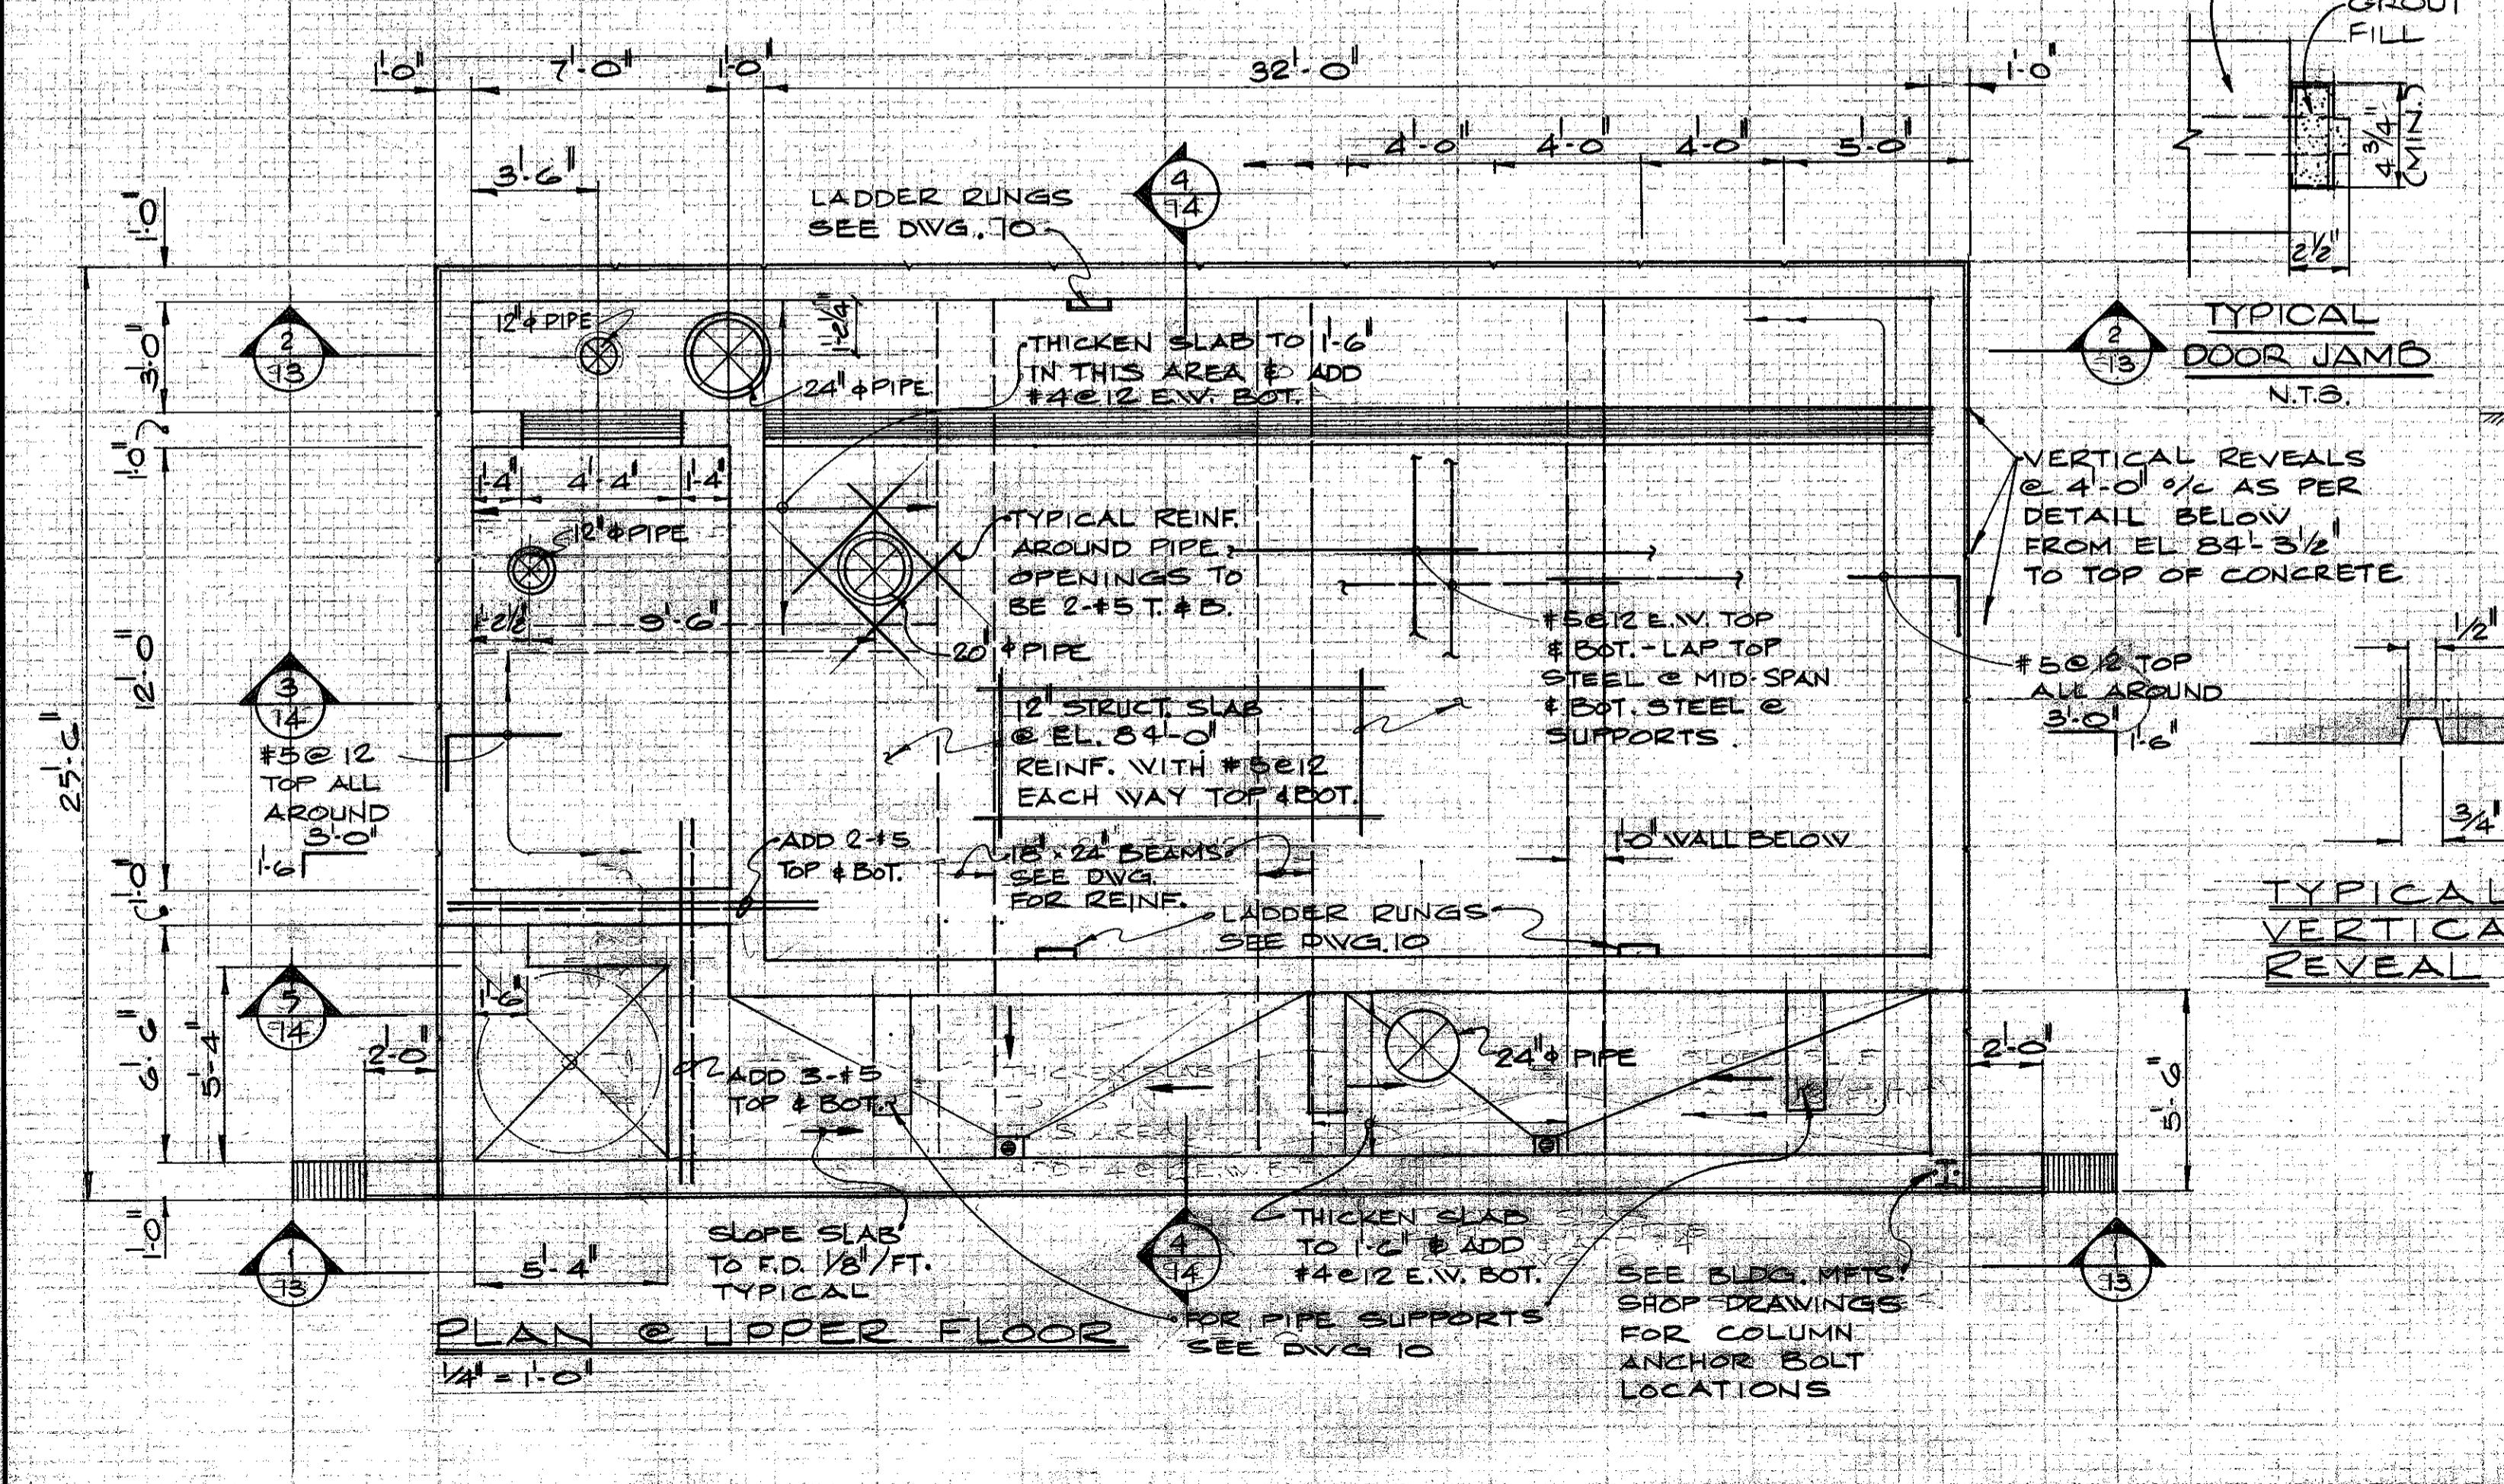 GROUT
FILL
1'-0"
7'-0"
1'-0"
32'-0"
1'-0"
4'-0"
4'-0"
4'-0"
5'-0"
4 3/4"
(MIN.)
2 1/2"
3'-6"
4
14
LADDER RUNGS
SEE DWG. 10
1'-0"
2
13
3'-0"
12"φ PIPE
1'-2 1/4"
24"φ PIPE
THICKEN SLAB TO 1'-6"
IN THIS AREA & ADD
#4@12 E.W. BOT.
2
13
TYPICAL
DOOR JAMB
N.T.S.
1'-0"
1'-4"
4'-4"
1'-4"
12"φ PIPE
1'-2 1/2"
9'-6"
20"φ PIPE
TYPICAL REINF.
AROUND PIPE
OPENINGS TO
BE 2-#5 T. & B.
VERTICAL REVEALS
@ 4'-0" o/c AS PER
DETAIL BELOW
FROM EL 84'-3 1/2"
TO TOP OF CONCRETE
#5@12 E.W. TOP
& BOT. - LAP TOP
STEEL @ MID-SPAN
& BOT. STEEL @
SUPPORTS.
#5@12 TOP
ALL AROUND
3'-0"
1'-6"
1/2"
3/4"
12'-0"
25'-6"
3
14
#5@12
TOP ALL
AROUND
3'-0"
1'-6
12" STRUCT. SLAB
@ EL. 84'-0"
REINF. WITH #5@12
EACH WAY TOP & BOT.
18" x 24" BEAMS
SEE DWG.
FOR REINF.
1'-0" WALL BELOW
ADD 2-#5
TOP & BOT.
LADDER RUNGS
SEE DWG. 10
TYPICAL
VERTICA
REVEAL
1'-0"
6'-6"
5'-4"
5
14
2'-0"
1'-6"
ADD 3-#5
TOP & BOT.
24"φ PIPE
2'-0"
5'-6"
1'-0"
1
13
5'-4"
SLOPE SLAB
TO F.D. 1/8"/FT.
TYPICAL
4
14
THICKEN SLAB
TO 1'-6" & ADD
#4@12 E.W. BOT.
FOR PIPE SUPPORTS
SEE DWG 10
SEE BLDG. MFTS.
SHOP DRAWINGS
FOR COLUMN
ANCHOR BOLT
LOCATIONS
13
PLAN @ UPPER FLOOR
1/4" = 1'-0"